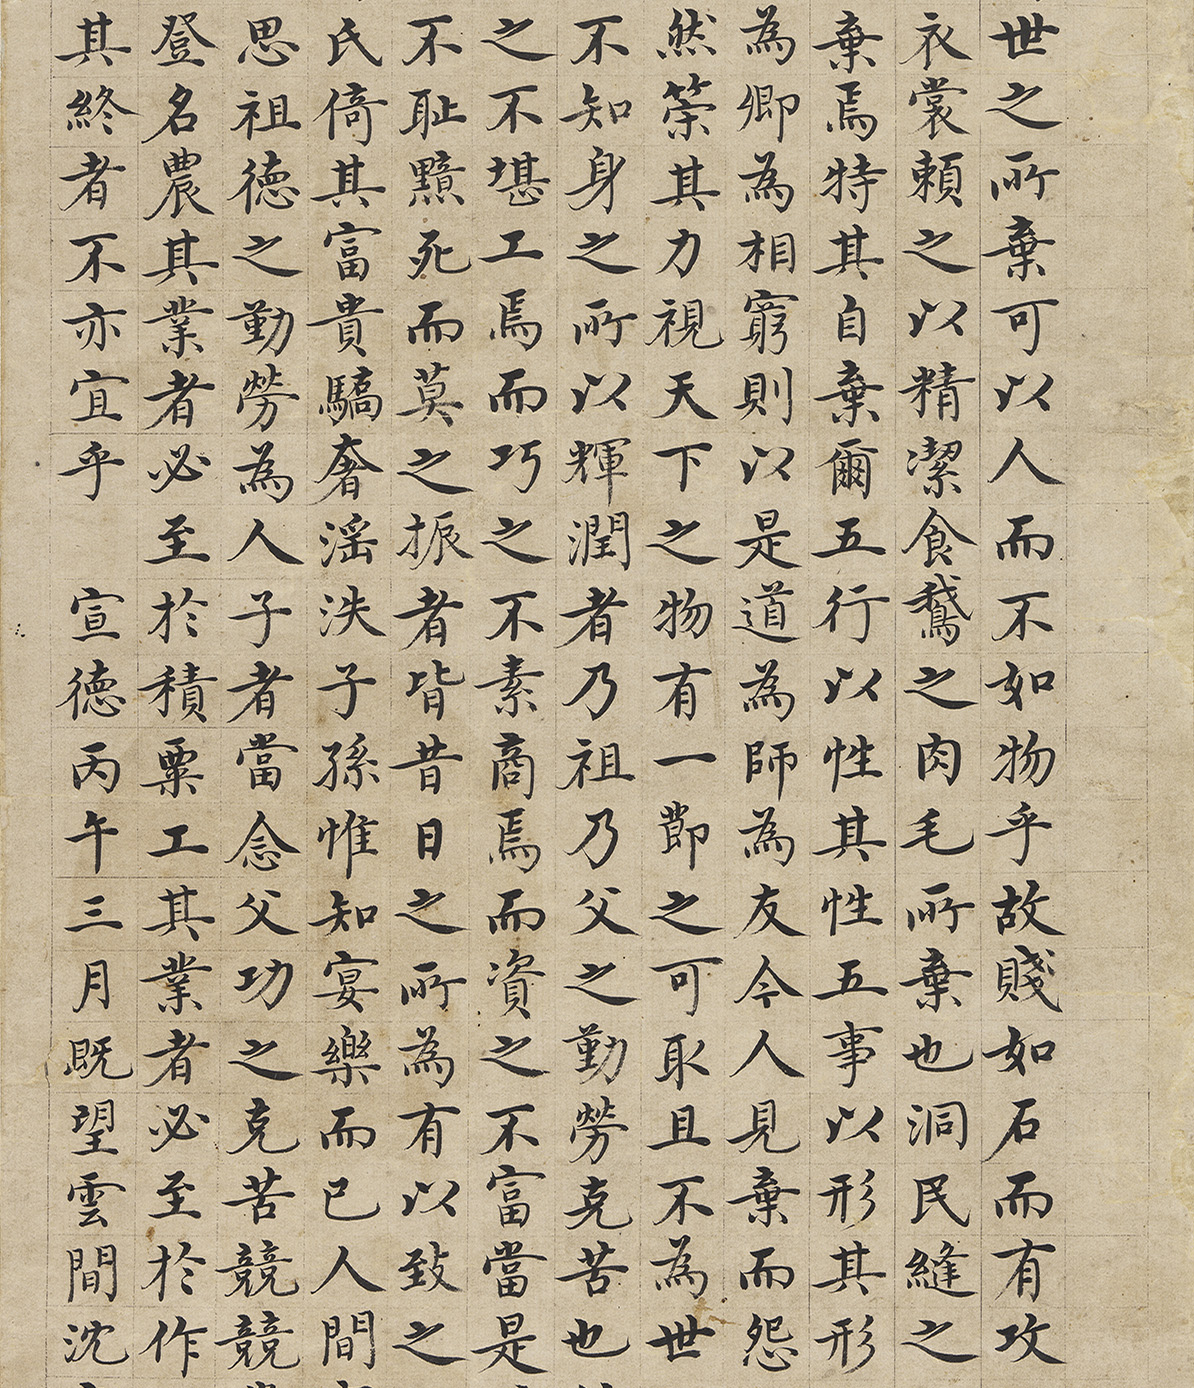 世之所棄可以人而不如物乎故賤如石而有攻
衣裳賴之以精潔食鵝之肉毛所棄也洞民縫之
棄焉特其自棄爾五行以性其性五事以形其形
為卿為相窮則以是道為師為友今人見棄而怨
然榮其力視天下之物有一節之可取且不為世
不知身之所以輝潤者乃祖乃父之勤勞克苦也
之不堪工焉而巧之不素商焉而資之不富當是
不恥黯死而莫之振者皆昔日之所為有以致之
氏倚其富貴驕奢淫泆子孫惟知宴樂而已人間
思祖德之勤勞為人子者當念父功之克苦競競
登名農其業者必至於積粟工其業者必至於作
其終者不亦宜乎　宣德丙午三月既望雲間沈